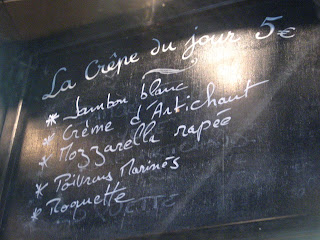 La Crêpe du jour 5€
* Jambon blanc
* Crème d'Artichaut
* Mozzarella rapée
* Poivrons Marinés
* Roquette